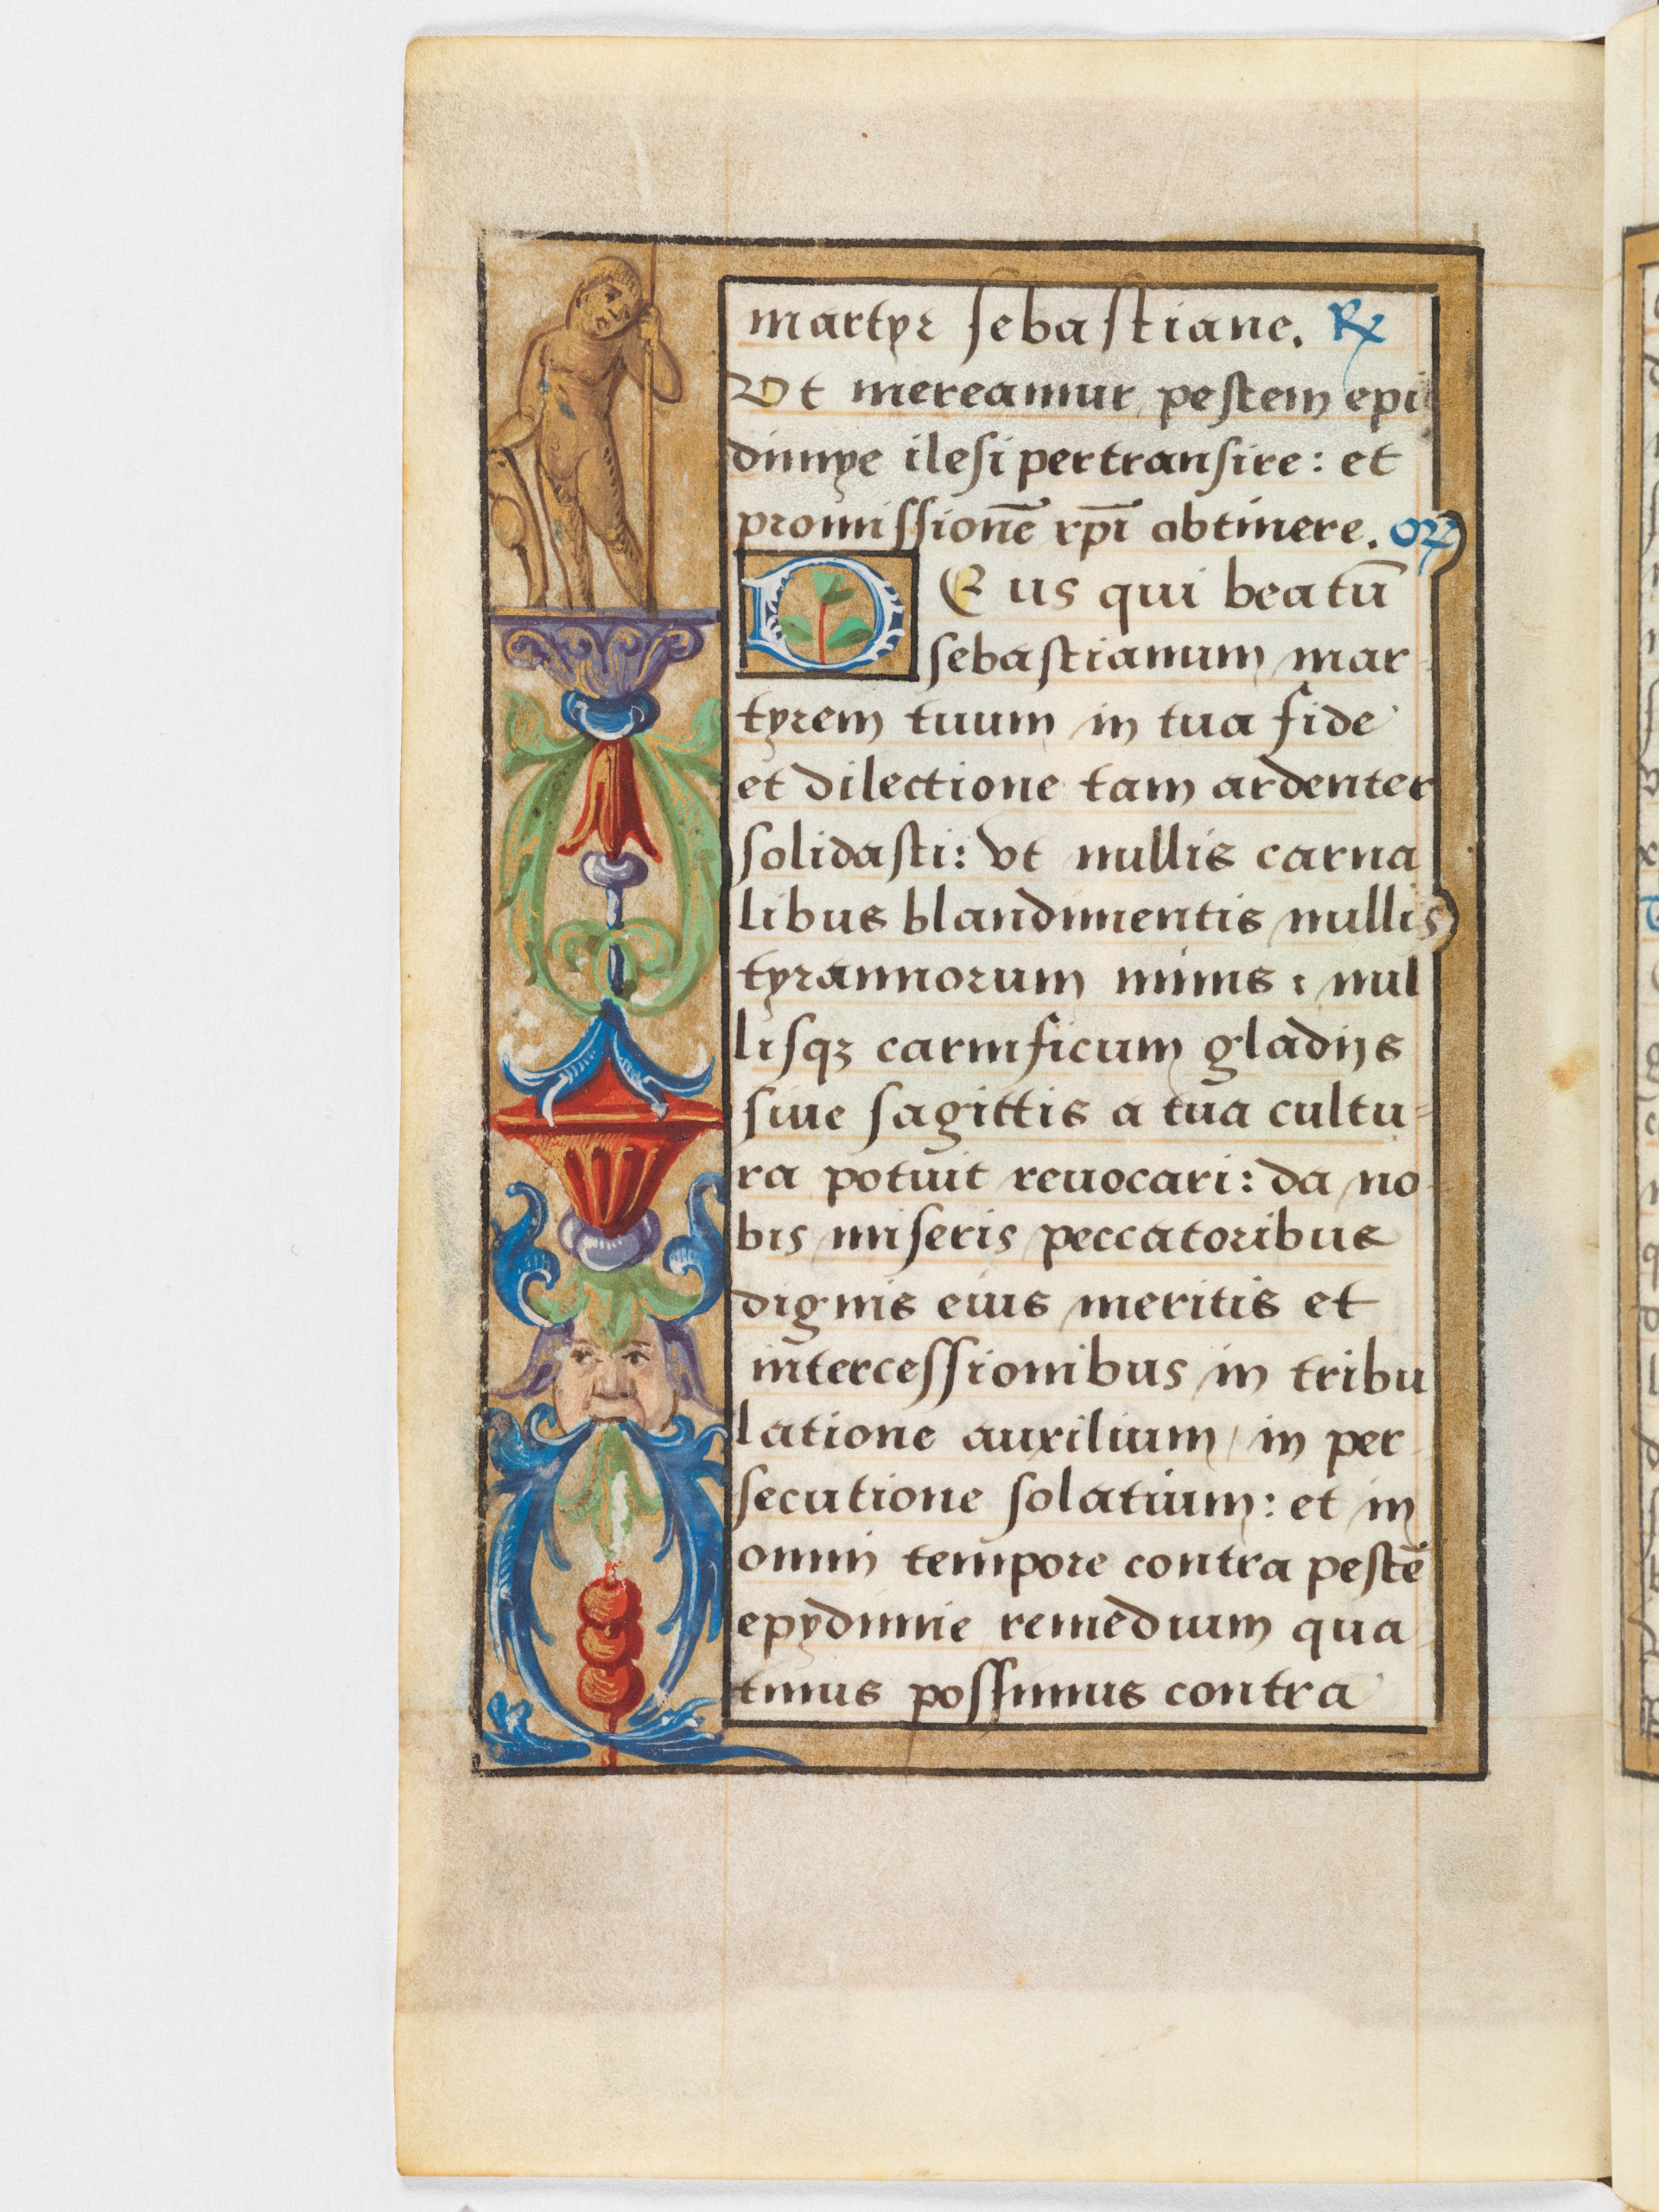 martyr sebastiane. ℞
Ut mereamur pestem epi
dimye ilesi pertransire: et
promissionē xp̄i obtinere. or̃
DEus qui beatū
sebastianum mar-
tyrem tuum in tua fide
et dilectione tam ardenter
solidasti: vt nullis carna
libus blandimentis nullis
tyrannorum minis: nul
lisqȝ carnificum gladijs
siue sagittis a tua cultu-
ra potuit reuocari: da no-
bis miseris peccatoribus
dignis eius meritis et
intercessionibus in tribu
latione auxilium, in per-
secutione solatium: et in
omni tempore contra pestē
epydimie remedium qua
tinus possimus contra